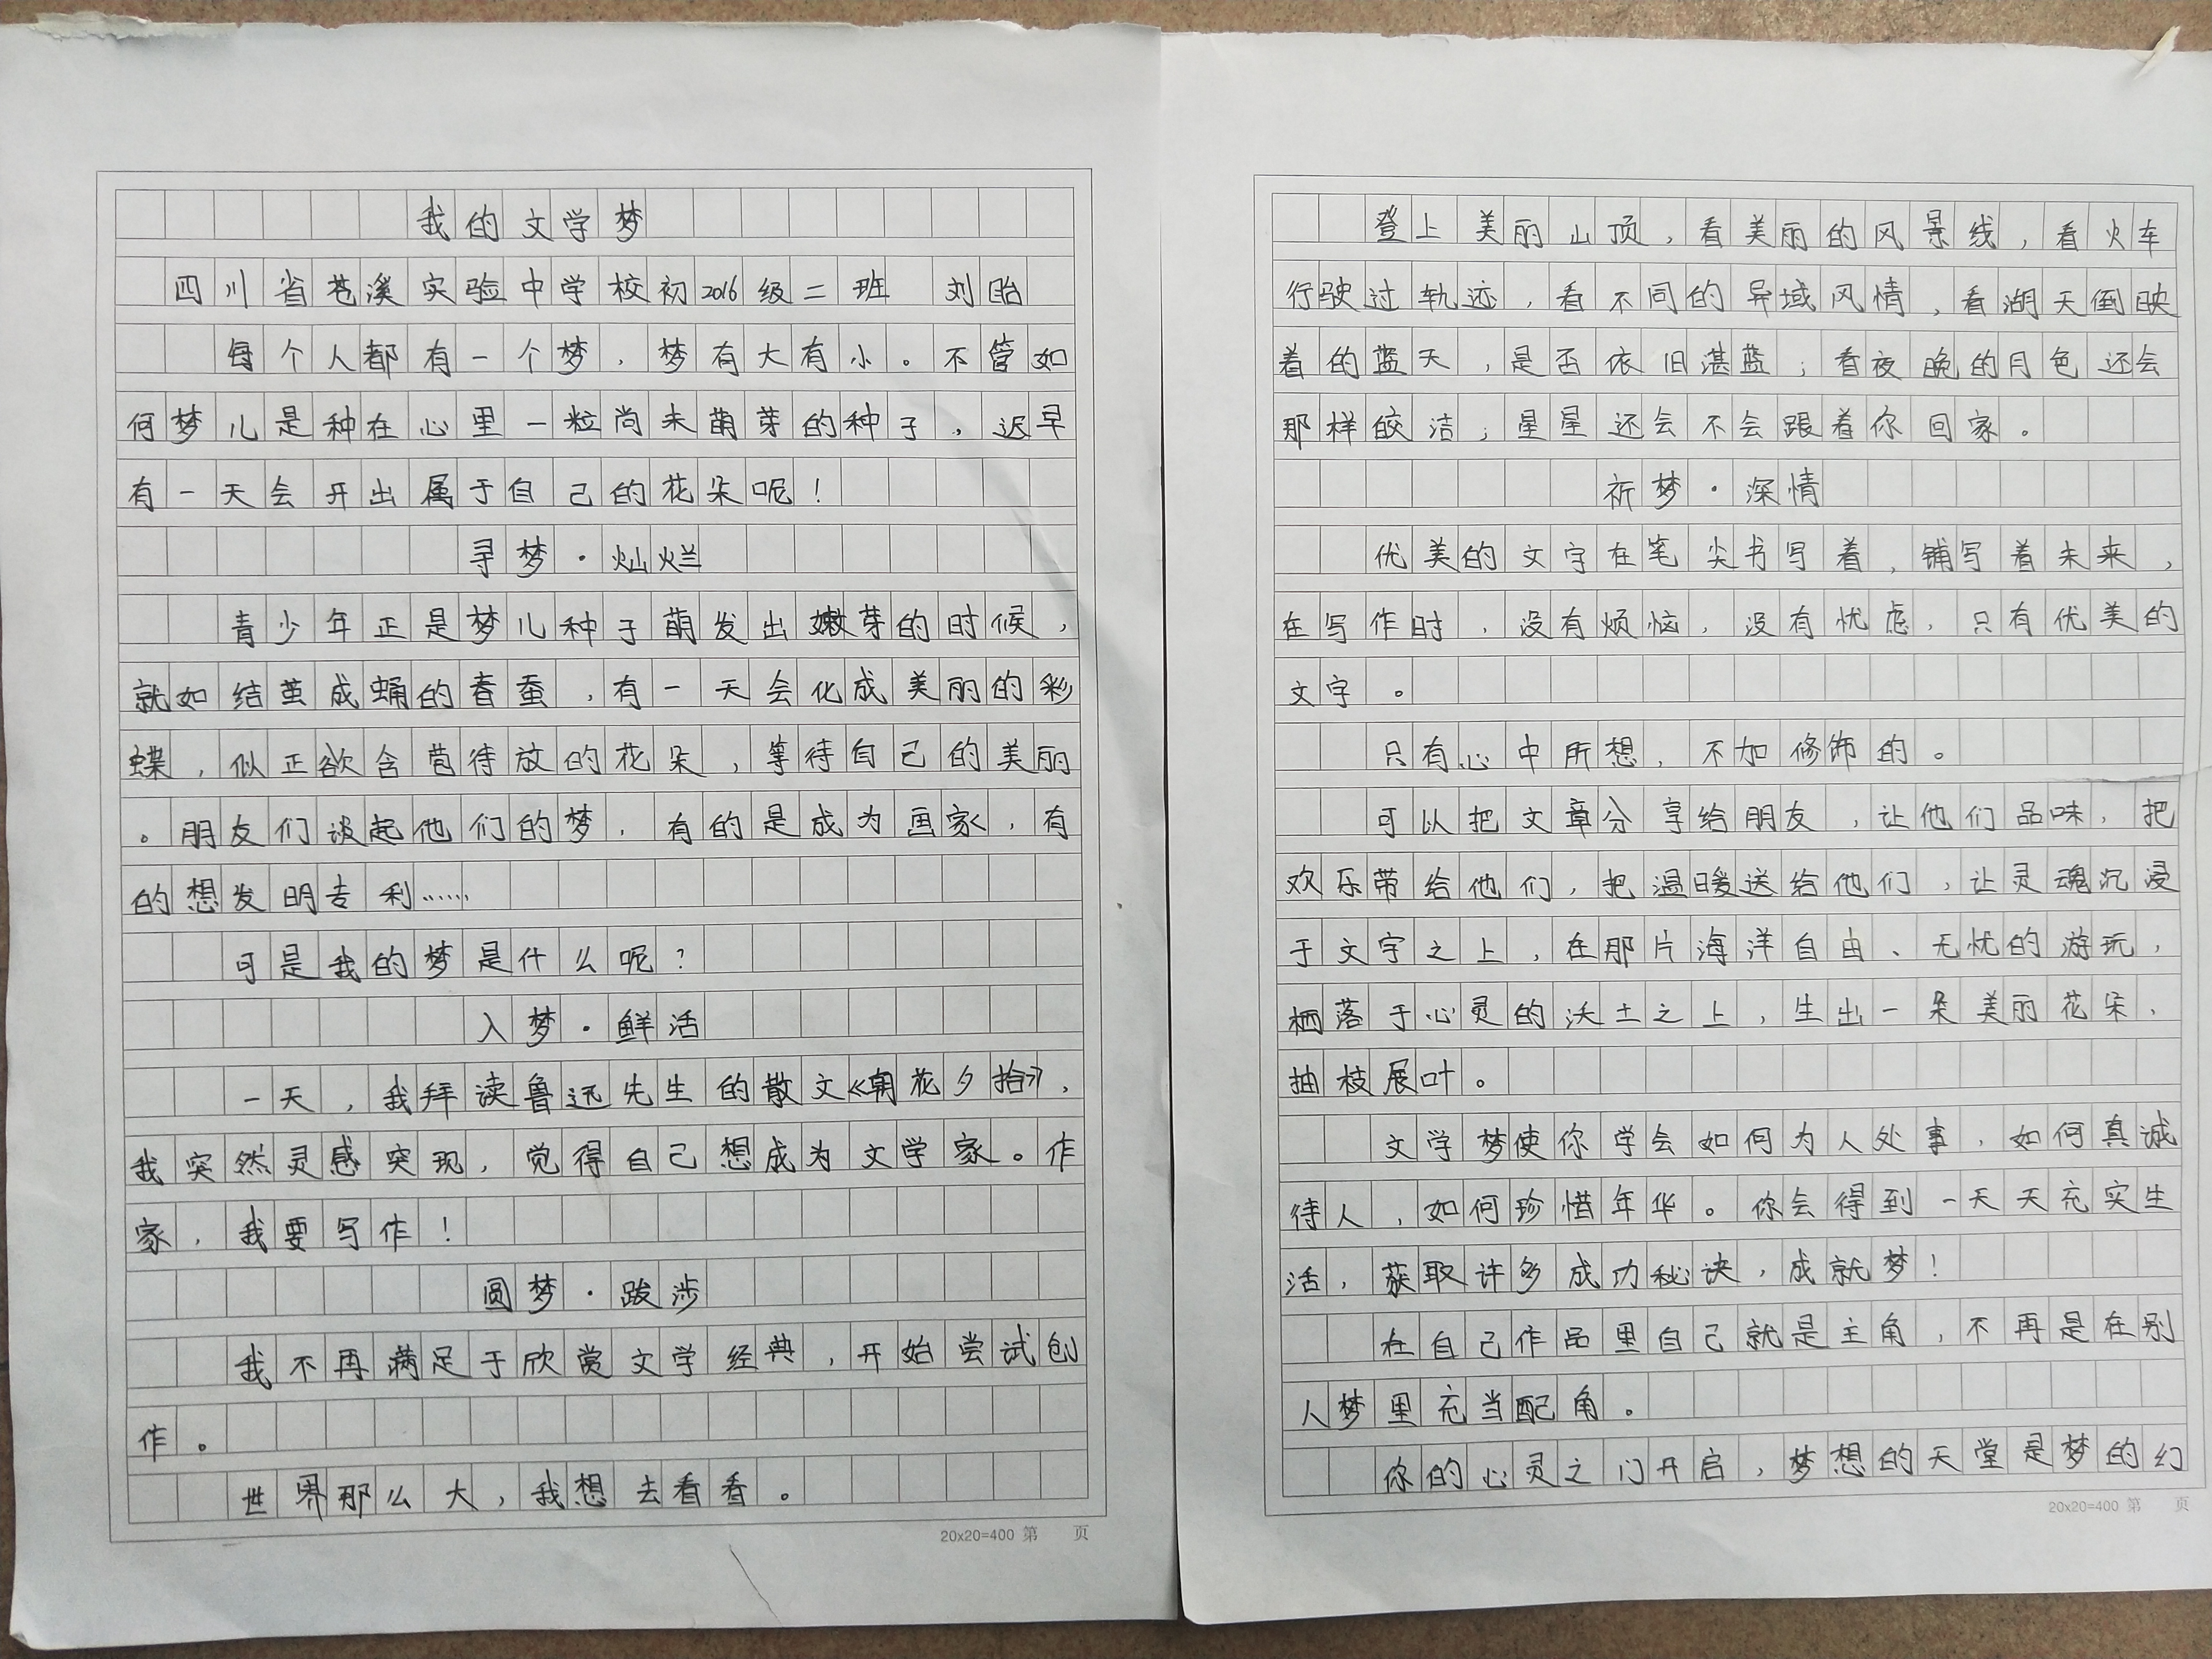 我的文学梦
四川省苍溪实验中学校初2016级二班 刘眙
每个人都有一个梦，梦有大有小。不管如
何梦儿是种在心里一粒尚未萌芽的种子，迟早
有一天会开出属于自己的花朵呢！
寻梦·灿烂
青少年正是梦儿种子萌发出嫩芽的时候，
就如结茧成蛹的春蚕，有一天会化成美丽的彩
蝶，似正欲含苞待放的花朵，等待自己的美丽
。朋友们谈起他们的梦，有的是成为画家，有
的想发明专利……
可是我的梦是什么呢？
入梦·鲜活
一天，我拜读鲁迅先生的散文《朝花夕拾》，
我突然灵感突现，觉得自己想成为文学家。作
家，我要写作！
圆梦·跋涉
我不再满足于欣赏文学经典，开始尝试创
作。
世界那么大，我想去看看。
20x20=400 第 页
登上美丽山顶，看美丽的风景线，看火车
行驶过轨迹，看不同的异域风情，看湖天倒映
着的蓝天，是否依旧湛蓝；看夜晚的月色还会
那样皎洁；星星还会不会跟着你回家。
祈梦·深情
优美的文字在笔尖书写着，铺写着未来，
在写作时，没有烦恼，没有忧虑，只有优美的
文字。
只有心中所想，不加修饰的。
可以把文章分享给朋友，让他们品味，把
欢乐带给他们，把温暖送给他们，让灵魂沉浸
于文字之上，在那片海洋自由、无忧的游玩，
栖落于心灵的沃土之上，生出一朵美丽花朵，
抽枝展叶。
文学梦使你学会如何为人处事，如何真诚
待人，如何珍惜年华。你会得到一天天充实生
活，获取许多成功秘诀，成就梦！
在自己作品里自己就是主角，不再是在别
人梦里充当配角。
你的心灵之门开启，梦想的天堂是梦的幻
20x20=400 第 页